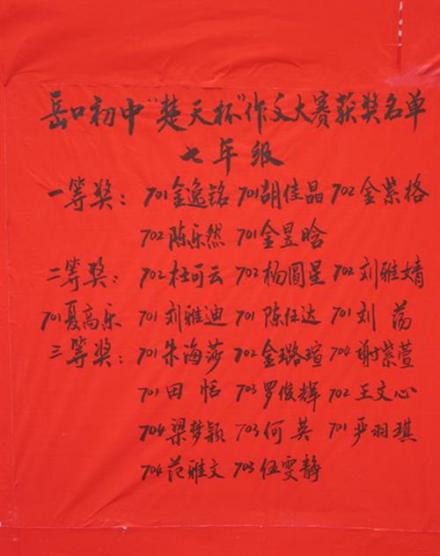 岳口初中“楚天杯”作文大赛获奖名单
七年级
一等奖：701金逸铭 701胡佳晶 702金紫格
702陈乐然 701金昱晗
二等奖：702杜可云 702杨圆星 702刘雅婧
701夏高乐 701刘雅迪 701陈任达 701刘荡
三等奖：701朱海莎 702金璐瑄 704谢紫萱
701田恬 703罗俊辉 702王文心
704梁梦颖 703何英 701严羽琪
704范雅文 703伍雯静